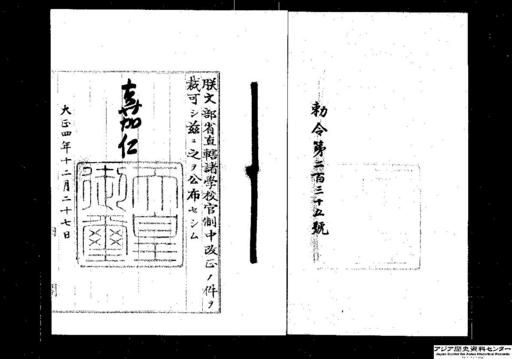 勅令第二百三十五號
朕文部省直轄諸學校官制中改正ノ件ヲ
裁可シ茲ニ之ヲ公布セシム
嘉仁
天皇御璽
大正四年十二月二十七日
アジア歴史資料センター
Japan Center for Asian Historical Records